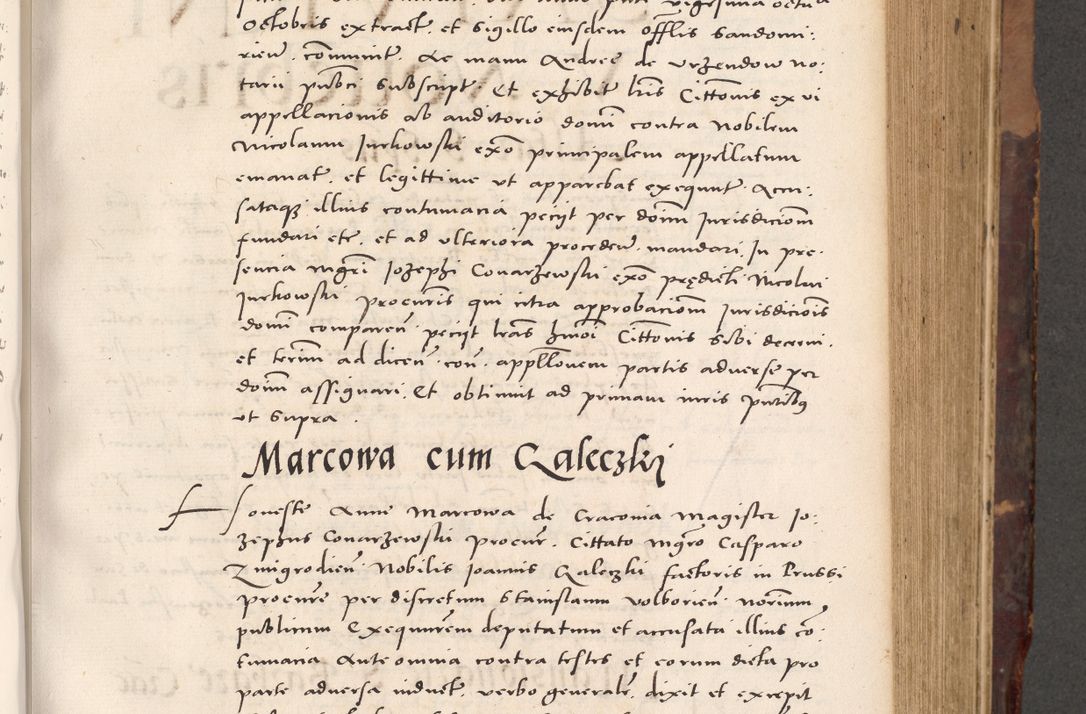 Octobris extract. et sigillo eiusdem Offlis Sandomi:
rien. communit. Ac manu Andree de Urzendow no:
tarii publici subscript. Et exhibit lris Cittonis ex vi
appellacionis ab auditorio domi contra Nobilem
Nicolaum Jurkowski exo principalem appellatum
emanat. et legittime ut apparebat exequut. Accu:
sataqz illius contumacia peciit per doim Jurisdiciom
fundari etc. et ad ulteriora proceden. mandari. In pre:
sencia mgri Iozephi Conarzewski exo prędicti Nicolai
Jurkowski procuris qui citra approbaciom Jurisdiciois
domi comparen. peciit lras hmoi Cittonis sibi decerni.
et termi ad dicen. con. appllonem partis adverse per
doim assignari. Et obtinuit ad primam iuris putibus
ut supra.
Marcowa cum Galeczki
Honeste Anne Marcowa de Cracovia Magister Io:
zephus Conarzewski procur. Cittato mgro Casparo
Zmigrodien. Nobilis Ioannis Galeczki factoris in Prussi
procure per discretum Stanislaum Volborien. norium
publicum Exequurem deputatum et accusata illius co:
tumacia Ante omnia contra testes et eorum dicta pro
parte adversa induct. verbo general. dixit et excepit